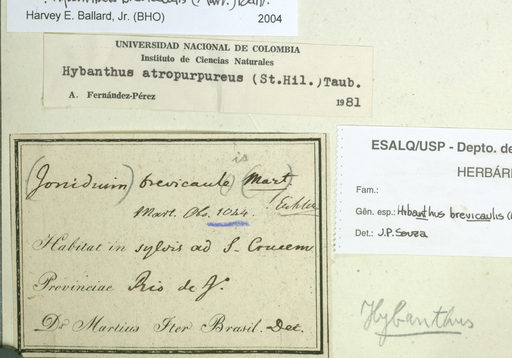 Harvey E. Ballard, Jr. (BHO) 2004
UNIVERSIDAD NACIONAL DE COLOMBIA
Instituto de Ciencias Naturales
Hybanthus atropurpureus (St.Hil.)Taub.
A. Fernández-Pérez 1981
(Jonidium) brevicaule is (Mart)
! Eichler
Mart. Obs. 1044.
Habitat in sylvis ad S. Crucem
Provinciae Rio de J.
Dr Martius Iter Brasil. Dec.
ESALQ/USP - Depto. de
HERBÁR
Fam.:
Gên. esp.: Hibanthus brevicaulis
Det.: J.P. Souza
Hybanthus